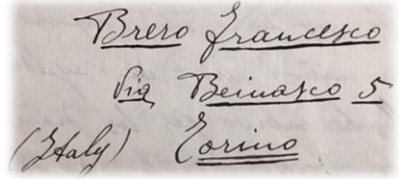 Brero Francesco
Via Beinasco 5
(Italy) Torino